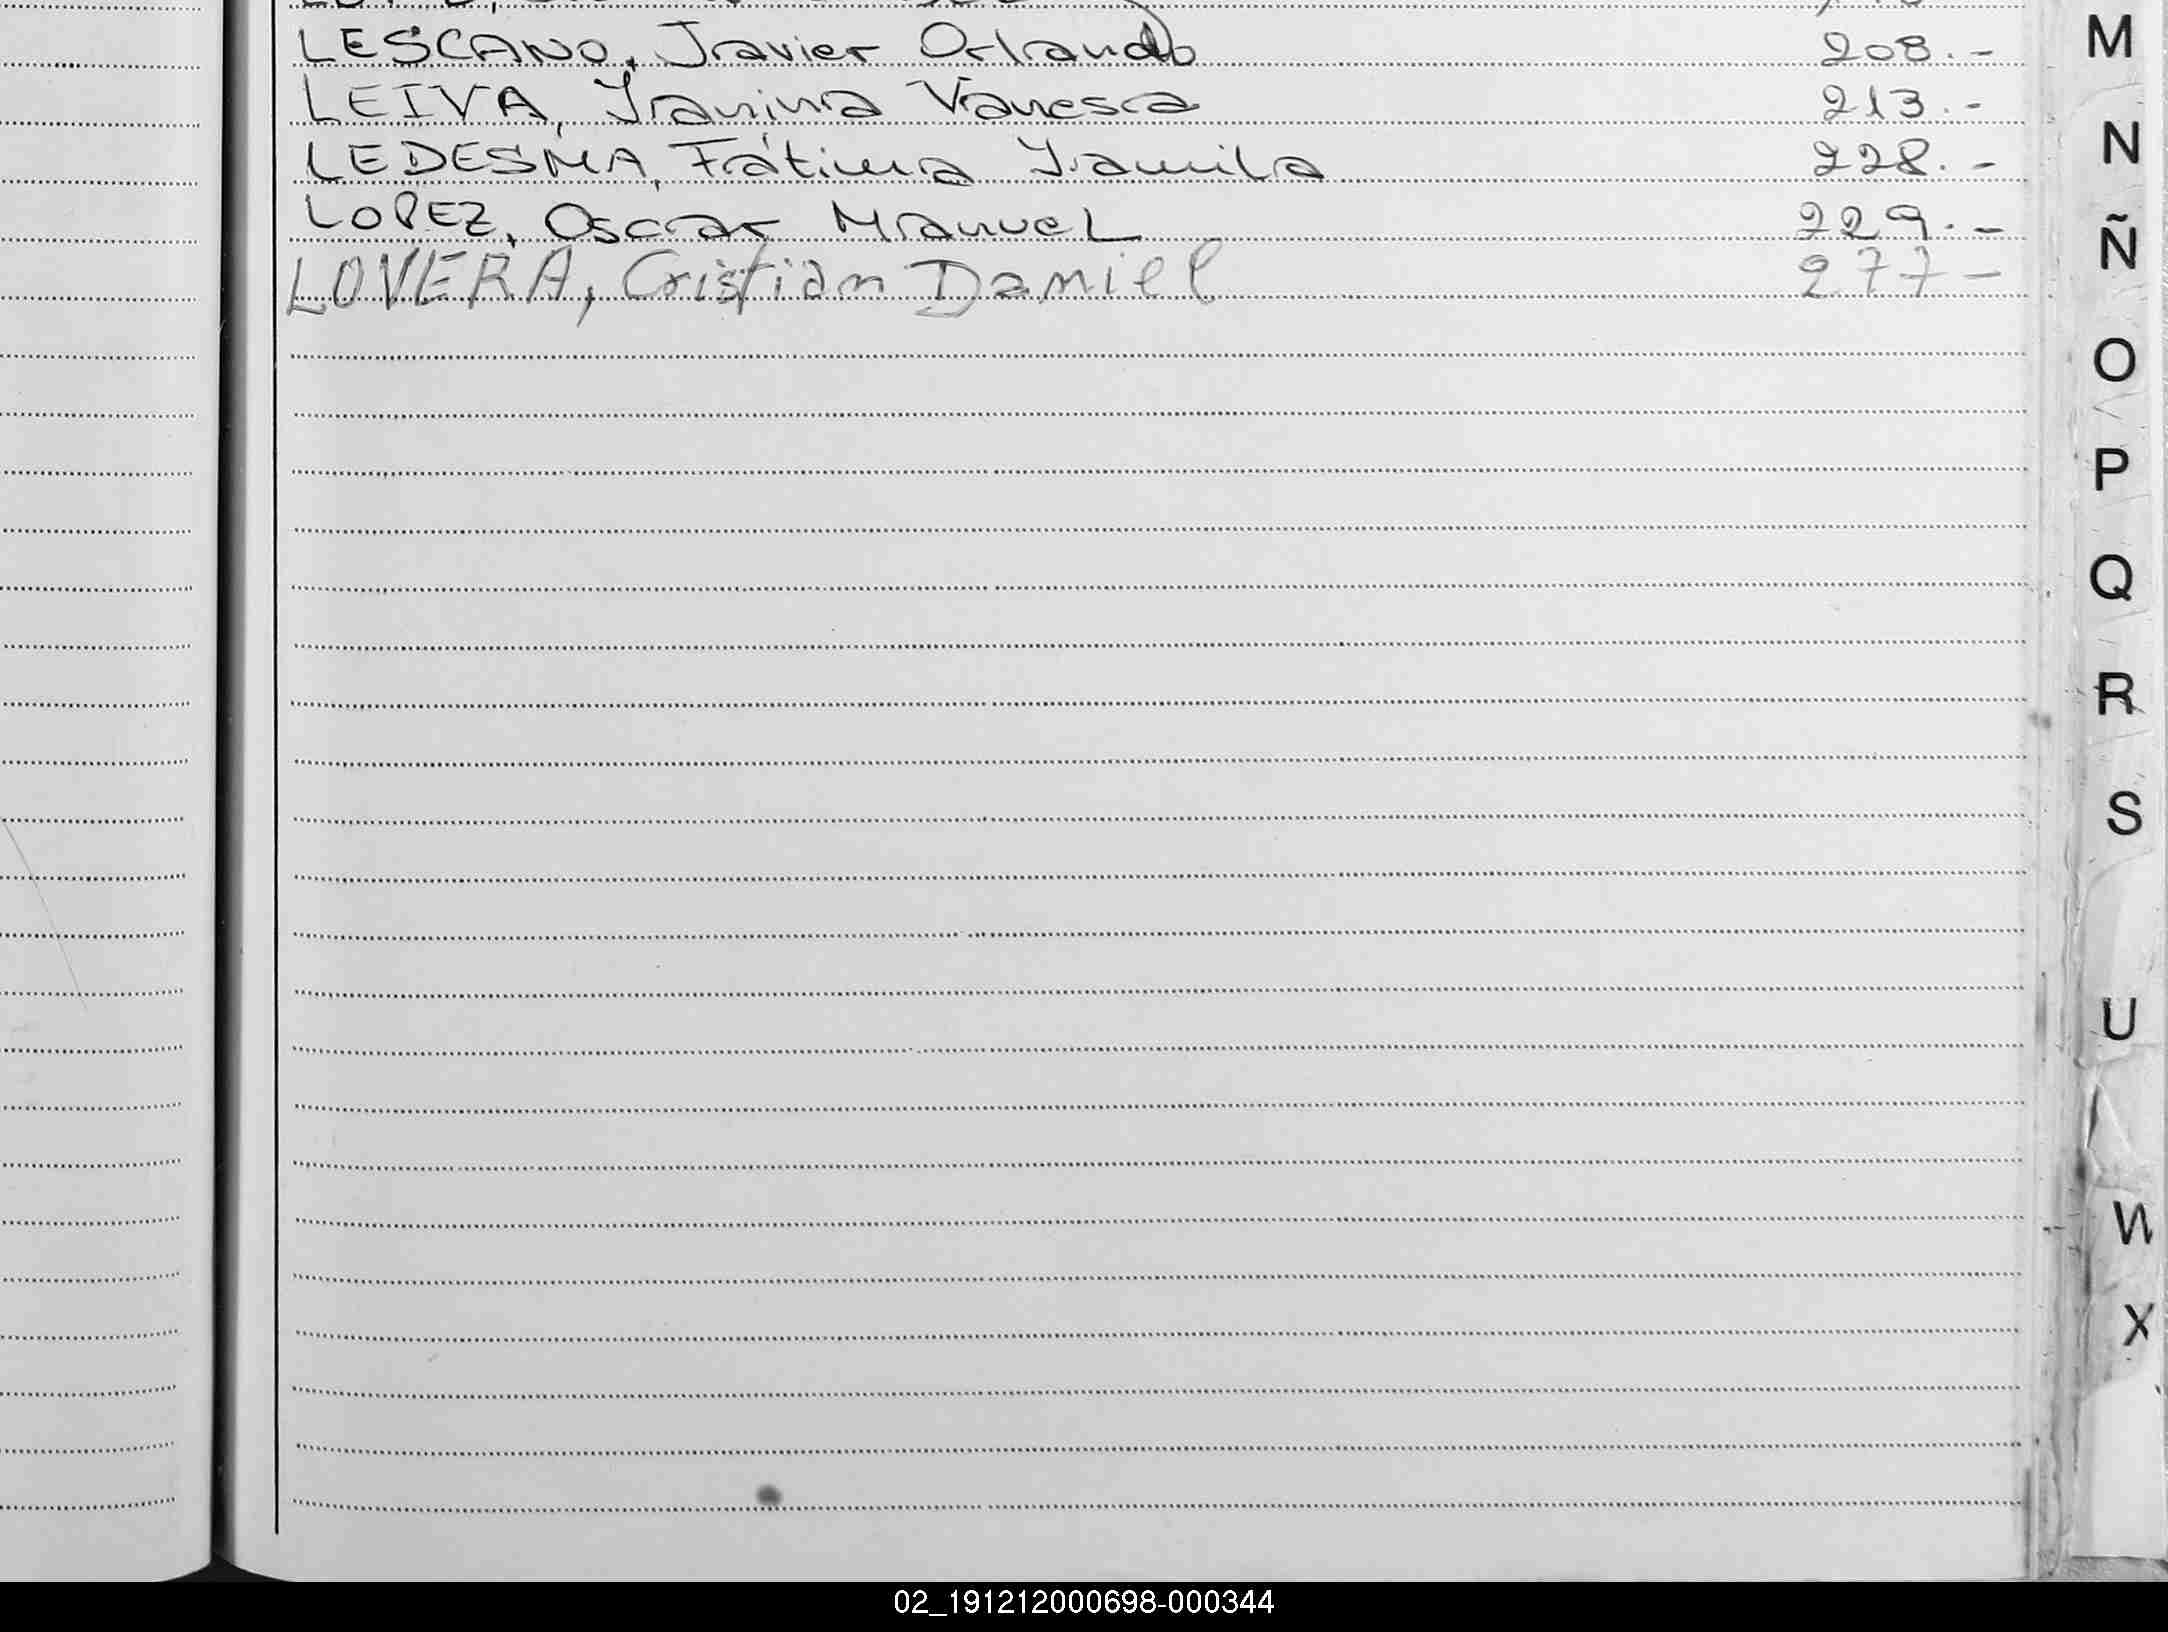 LESCANO, Javier Orlando 208.-
LEIVA, Yanina Vanesa 213.-
LEDESMA, Fátima Yamila 228.-
LOPEZ, Oscar Manuel 229.-
LOVERA, Cristian Daniel 277-
M
N
Ñ
O
P
Q
R
S
U
W
X
02_191212000698-000344